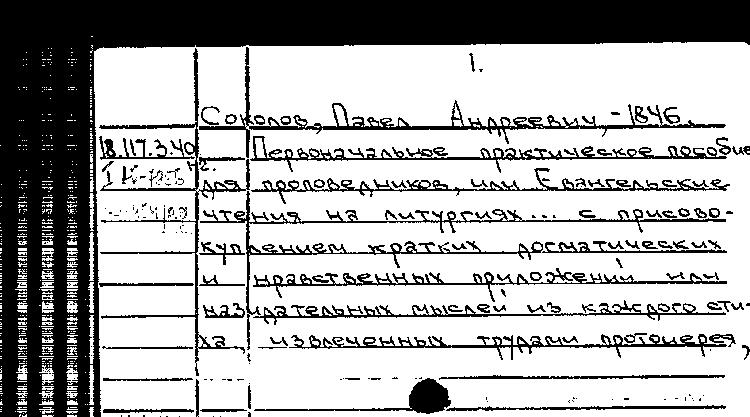 1.
Соколов, Павел Андреевич, -1846.
18.117.3.40 Первоначальное практическое пособие
для проповедников, или Евангельские
чтения на литургиях... с присово-
куплением кратких догматических
и нравственных приложений или
назидательных мыслей из каждого сти-
ха, извлеченных трудами протоиерея,